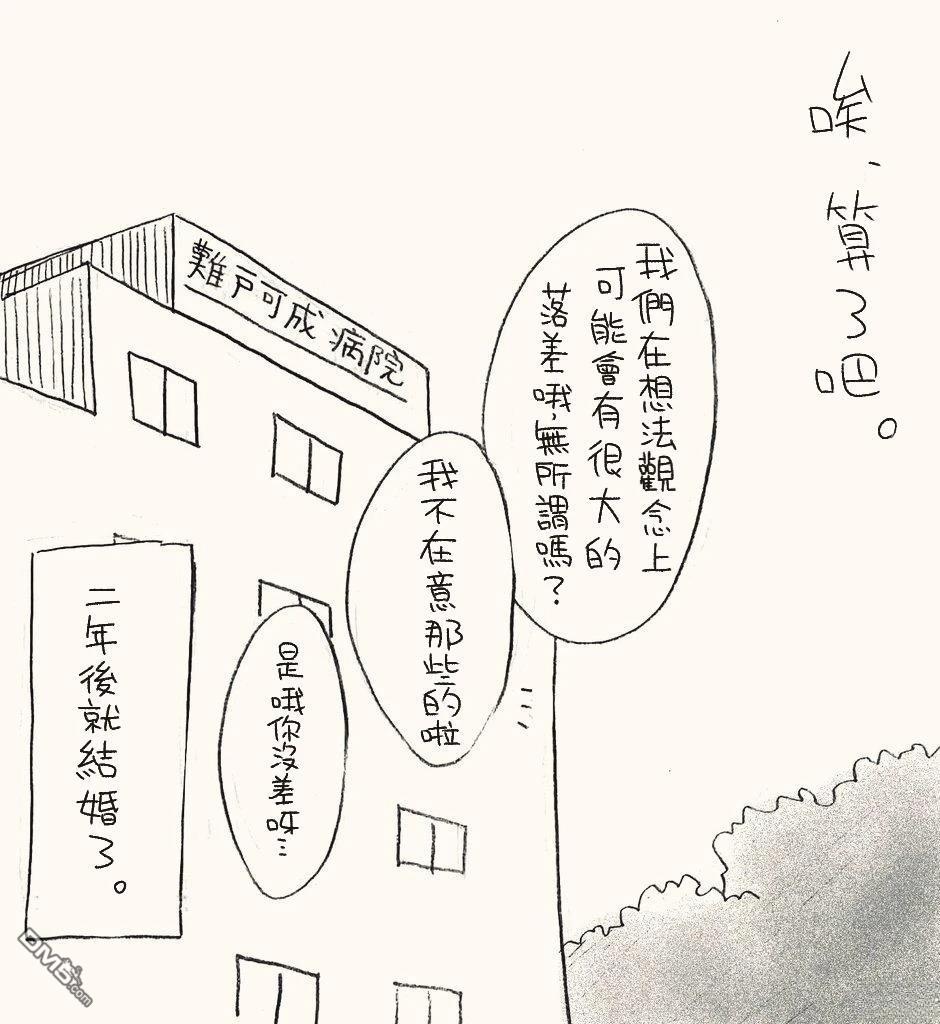 唉、算了吧。
我們在想法觀念上
可能會有很大的
落差哦，無所謂嗎？
難戸可成病院
我不在意那些的啦
是哦你沒差呀…
二年後就結婚了。
DM5.com